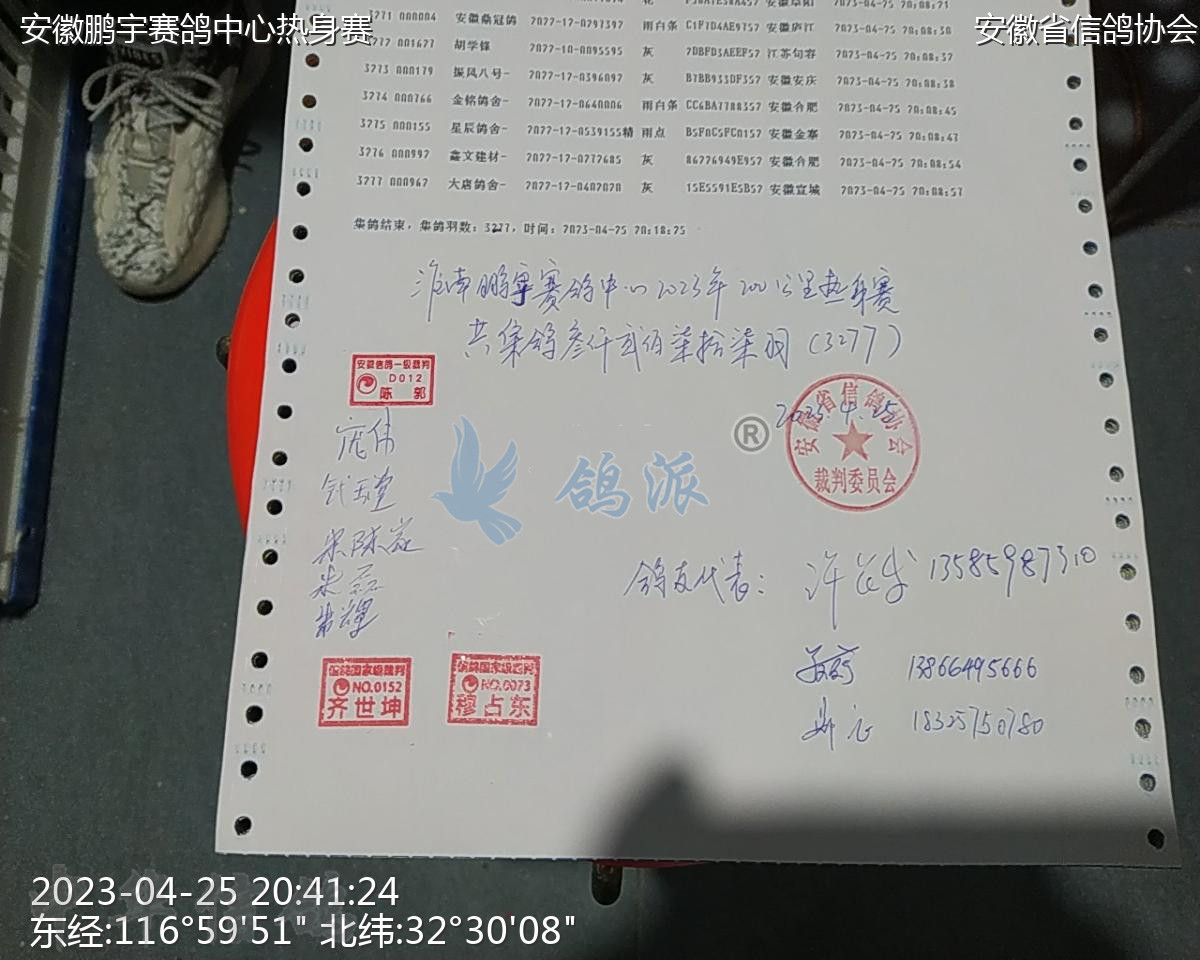 安徽鹏宇赛鸽中心热身赛
安徽省信鸽协会
3271 000004 安徽鼎冠鸽 2022-12-0297397 雨白条 C1F7D4AE9757 安徽庐江 2023-04-25 20:08:30
3272 001677 胡学锋 2022-10-0095595 灰 2DBFD3AEEF57 江苏句容 2023-04-25 20:08:32
3273 000179 振风八号- 2022-12-0396092 灰 B7BB933DF357 安徽安庆 2023-04-25 20:08:38
3274 000766 金铭鸽舍- 2022-12-0640006 雨白条 CC6BA7788357 安徽合肥 2023-04-25 20:08:45
3275 000155 星辰鸽舍- 2022-12-0539155精 雨点 B5F0C5FC0157 安徽金寨 2023-04-25 20:08:47
3276 000992 鑫文建材- 2022-12-0272685 灰 86226949E957 安徽合肥 2023-04-25 20:08:54
3277 000962 大唐鸽舍- 2022-12-0402020 灰 15E5591E5B57 安徽宣城 2023-04-25 20:08:57
集鸽结束，集鸽羽数：3277，时间：2023-04-25 20:18:25
淮南鹏宇赛鸽中心2023年200公里热身赛
共集鸽叁仟贰佰柒拾柒羽（3277）
安徽信鸽一级裁判
D012
陈 郭
2023.4.25
安徽省信鸽协会
裁判委员会
庞伟
鸽派®
鸽友代表： 13585987310
13866495666
18325750780
信鸽国家级裁判
NO.0152
齐世坤
信鸽国家级裁判
NO.0073
穆占东
2023-04-25 20:41:24
东经:116°59'51" 北纬:32°30'08"